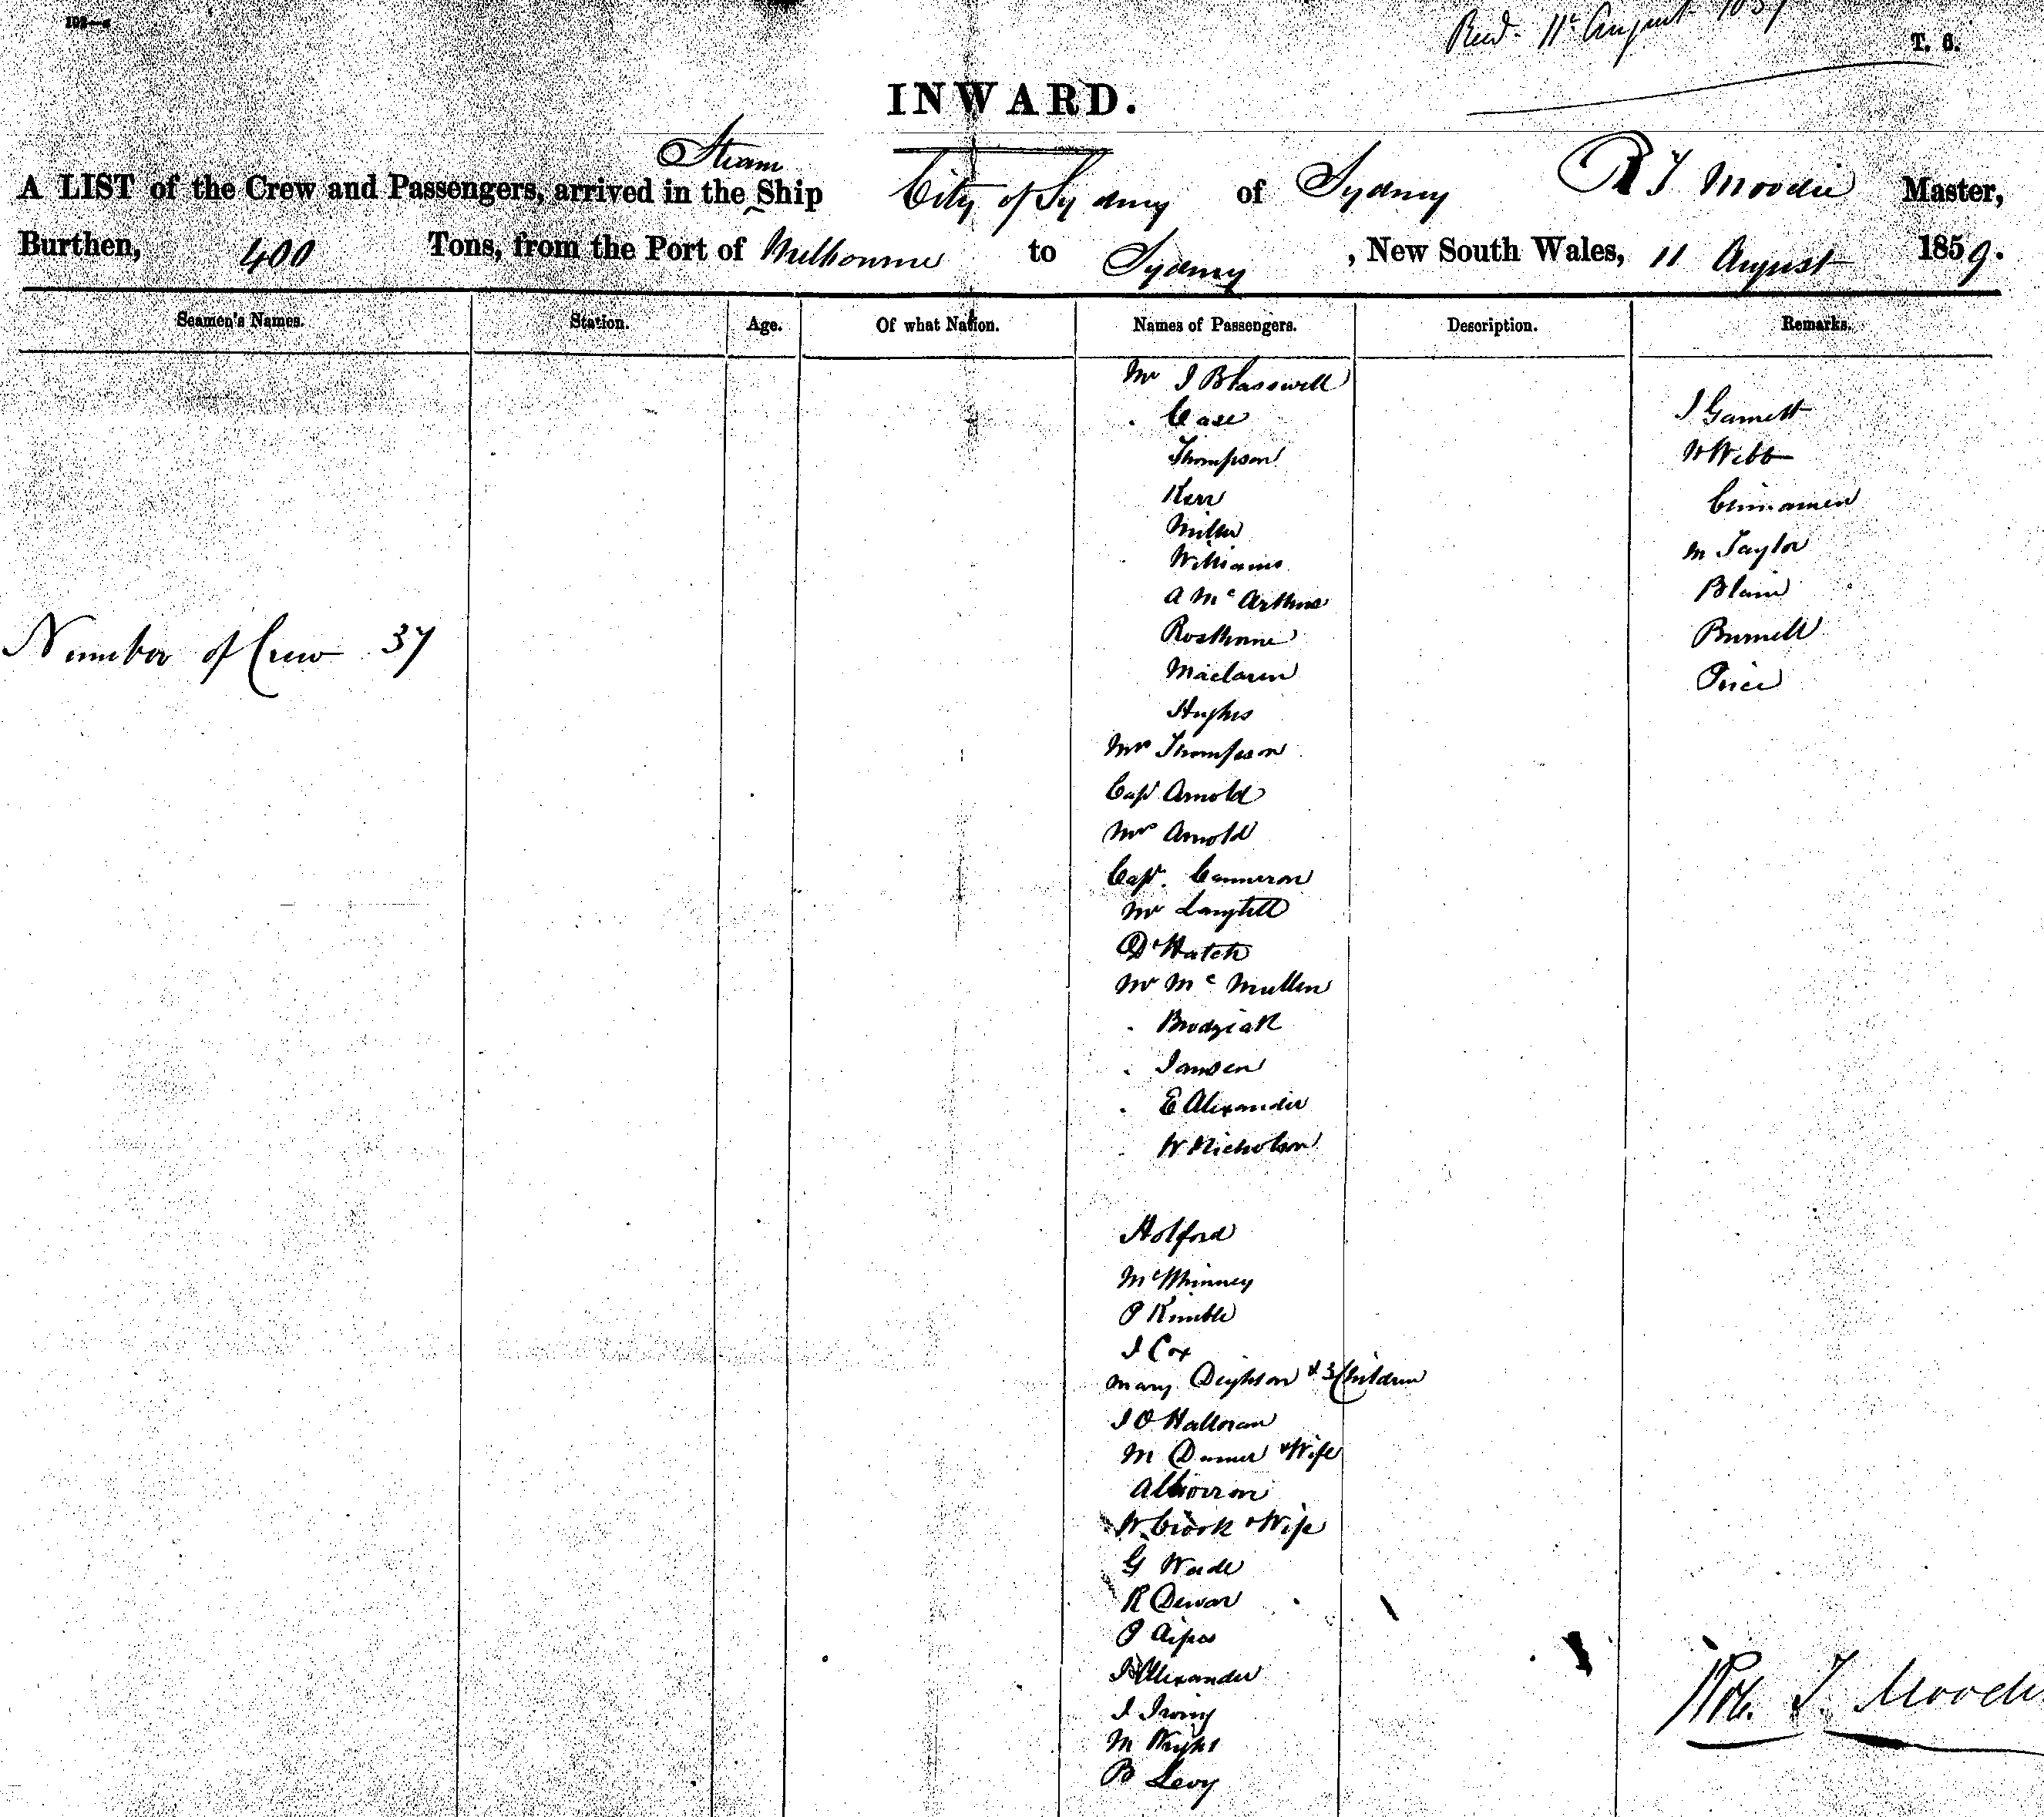 Recd. 11th August 1859
T. 6.
INWARD.
Steam
A LIST of the Crew and Passengers, arrived in the ^ Ship City of Sydney of Sydney R T Moodie Master,
Burthen, 400 Tons, from the Port of Melbourne to Sydney, New South Wales, 11 August 1859.
Seamen's Names. Station. Age. Of what Nation. Names of Passengers. Description. Remarks.
Number of Crew 37
Mr J Blasswell
. Case
Thompson
Kerr
Miller
Williams
A Mc Arthur
Rosthorne
Maclaren
Hughes
Mrs Thompson
Capt Arnold
Mrs Arnold
Capt. Cameron
Mr Langtill
Dr Hatch
Mr Mc Mullen
. Brodziak
. Jansen
. E Alexander
W Nicholson
Holford
McWhinney
P Kimble
J Cox
Mary Deighton & 3 Children
J O Halloran
M Dunner & Wife
W Crook & Wife
G Wade
R Dewar
J Alexander
J Irving
M Wright
B Levy
J Garnett
W Webb
Cinnamen
M Taylor
Blain
Burnell
Price
Rob. T. Moodie